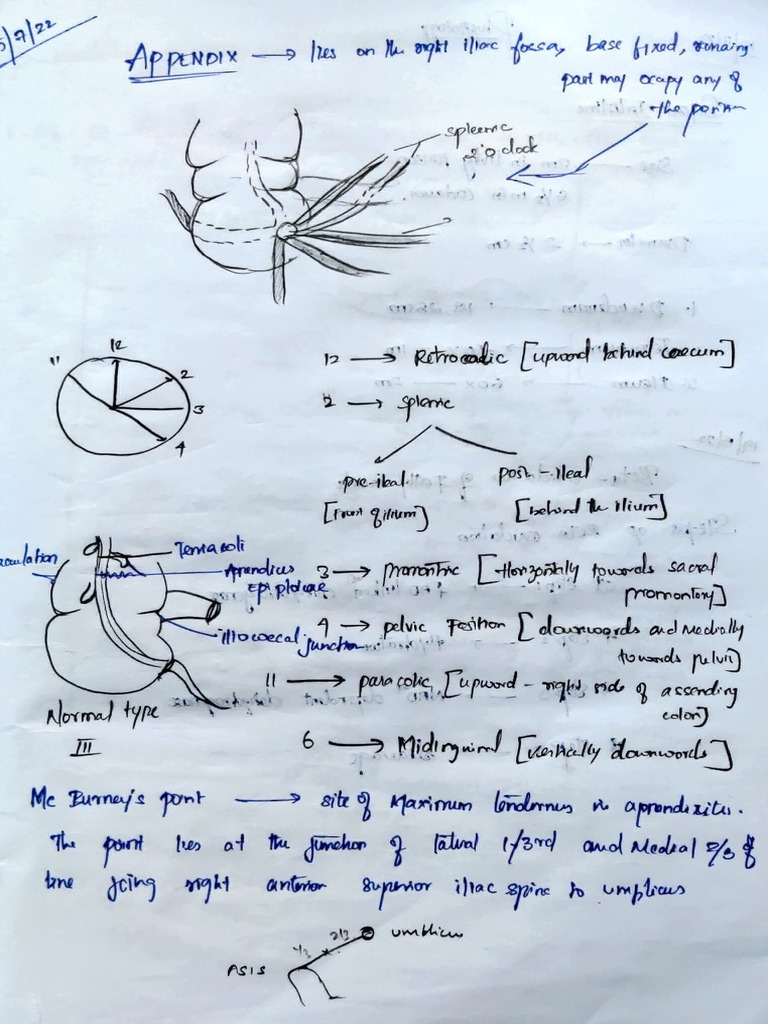 5/7/22
APPENDIX → lies on the right iliac fossa, base fixed, remaing
part may ocapy any of
the position
spleenic
2'O clock
11 12 2 3 4
12 → Retrocodic [upward behind caecum]
2 → splenic
pre-ileal post-ileal
[Front of ilium] [behind the ilium]
Tenia coli
Apendicus
Epiploicae
illiocoecal junction
3 → promontric [Horizontally towards sacral
promontory]
4 → pelvic position [downwords and Medially
towards pelvis]
11 → paracolic [upward - right side of assending
colon]
Normal type
III
6 → Midinguinal [vertically downwords]
Mc Burney's point → site of Maximum tendernus in apendisitis.
The point lies at the junction of lateral 1/3rd and Medial 2/3 of
line joing right anterior superior iliac spine to umplicus
1/3 2/3 umblicus
ASIS